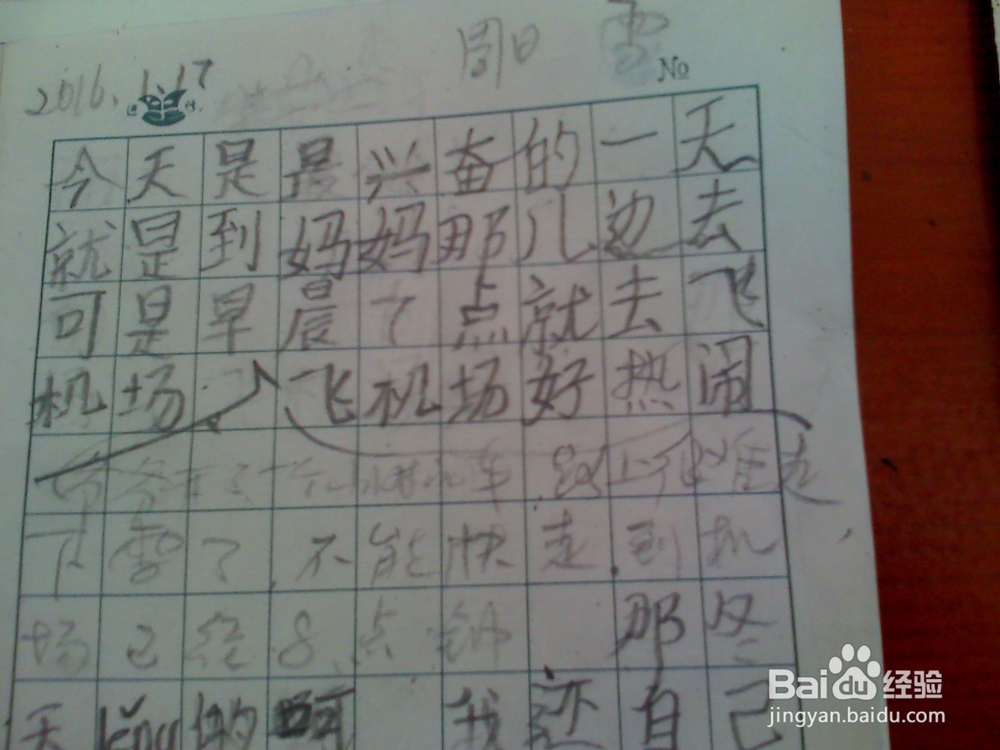 周日 雪
2016.1.17
№
今天是最兴奋的一天
就是到妈妈那儿边去
可是早晨7点就去飞
机场. 飞机场好热闹
爷爷开了一 车.路上 难走
下雪了.不能快走.到机
场已经8点钟 那冬
天 的 我还自己
Baidu 经验
jingyan.baidu.com